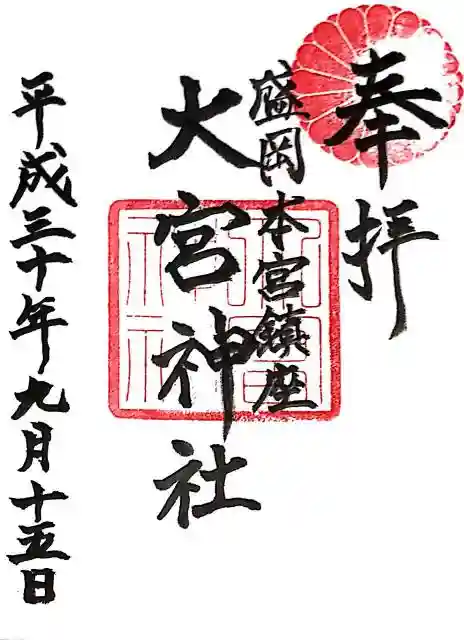 奉拝
盛岡本宮鎮座
大宮神社
平成三十年九月十五日